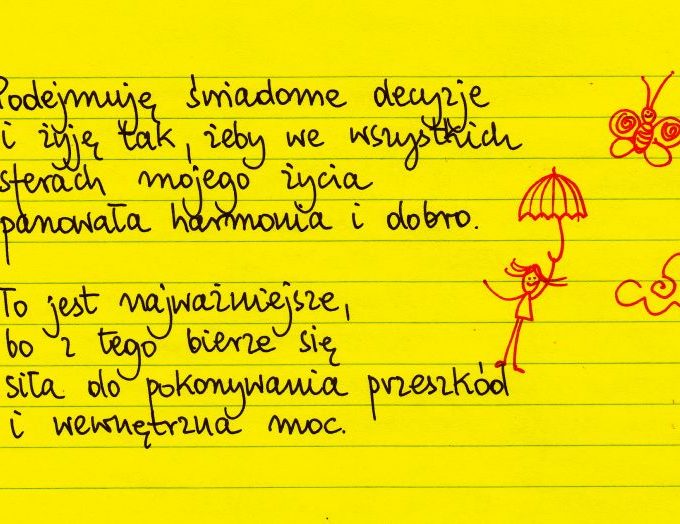 Podejmuję świadome decyzje
i żyję tak, żeby we wszystkich
sferach mojego życia
panowała harmonia i dobro.
To jest najważniejsze,
bo z tego bierze się
siła do pokonywania przeszkód
i wewnętrzna moc.